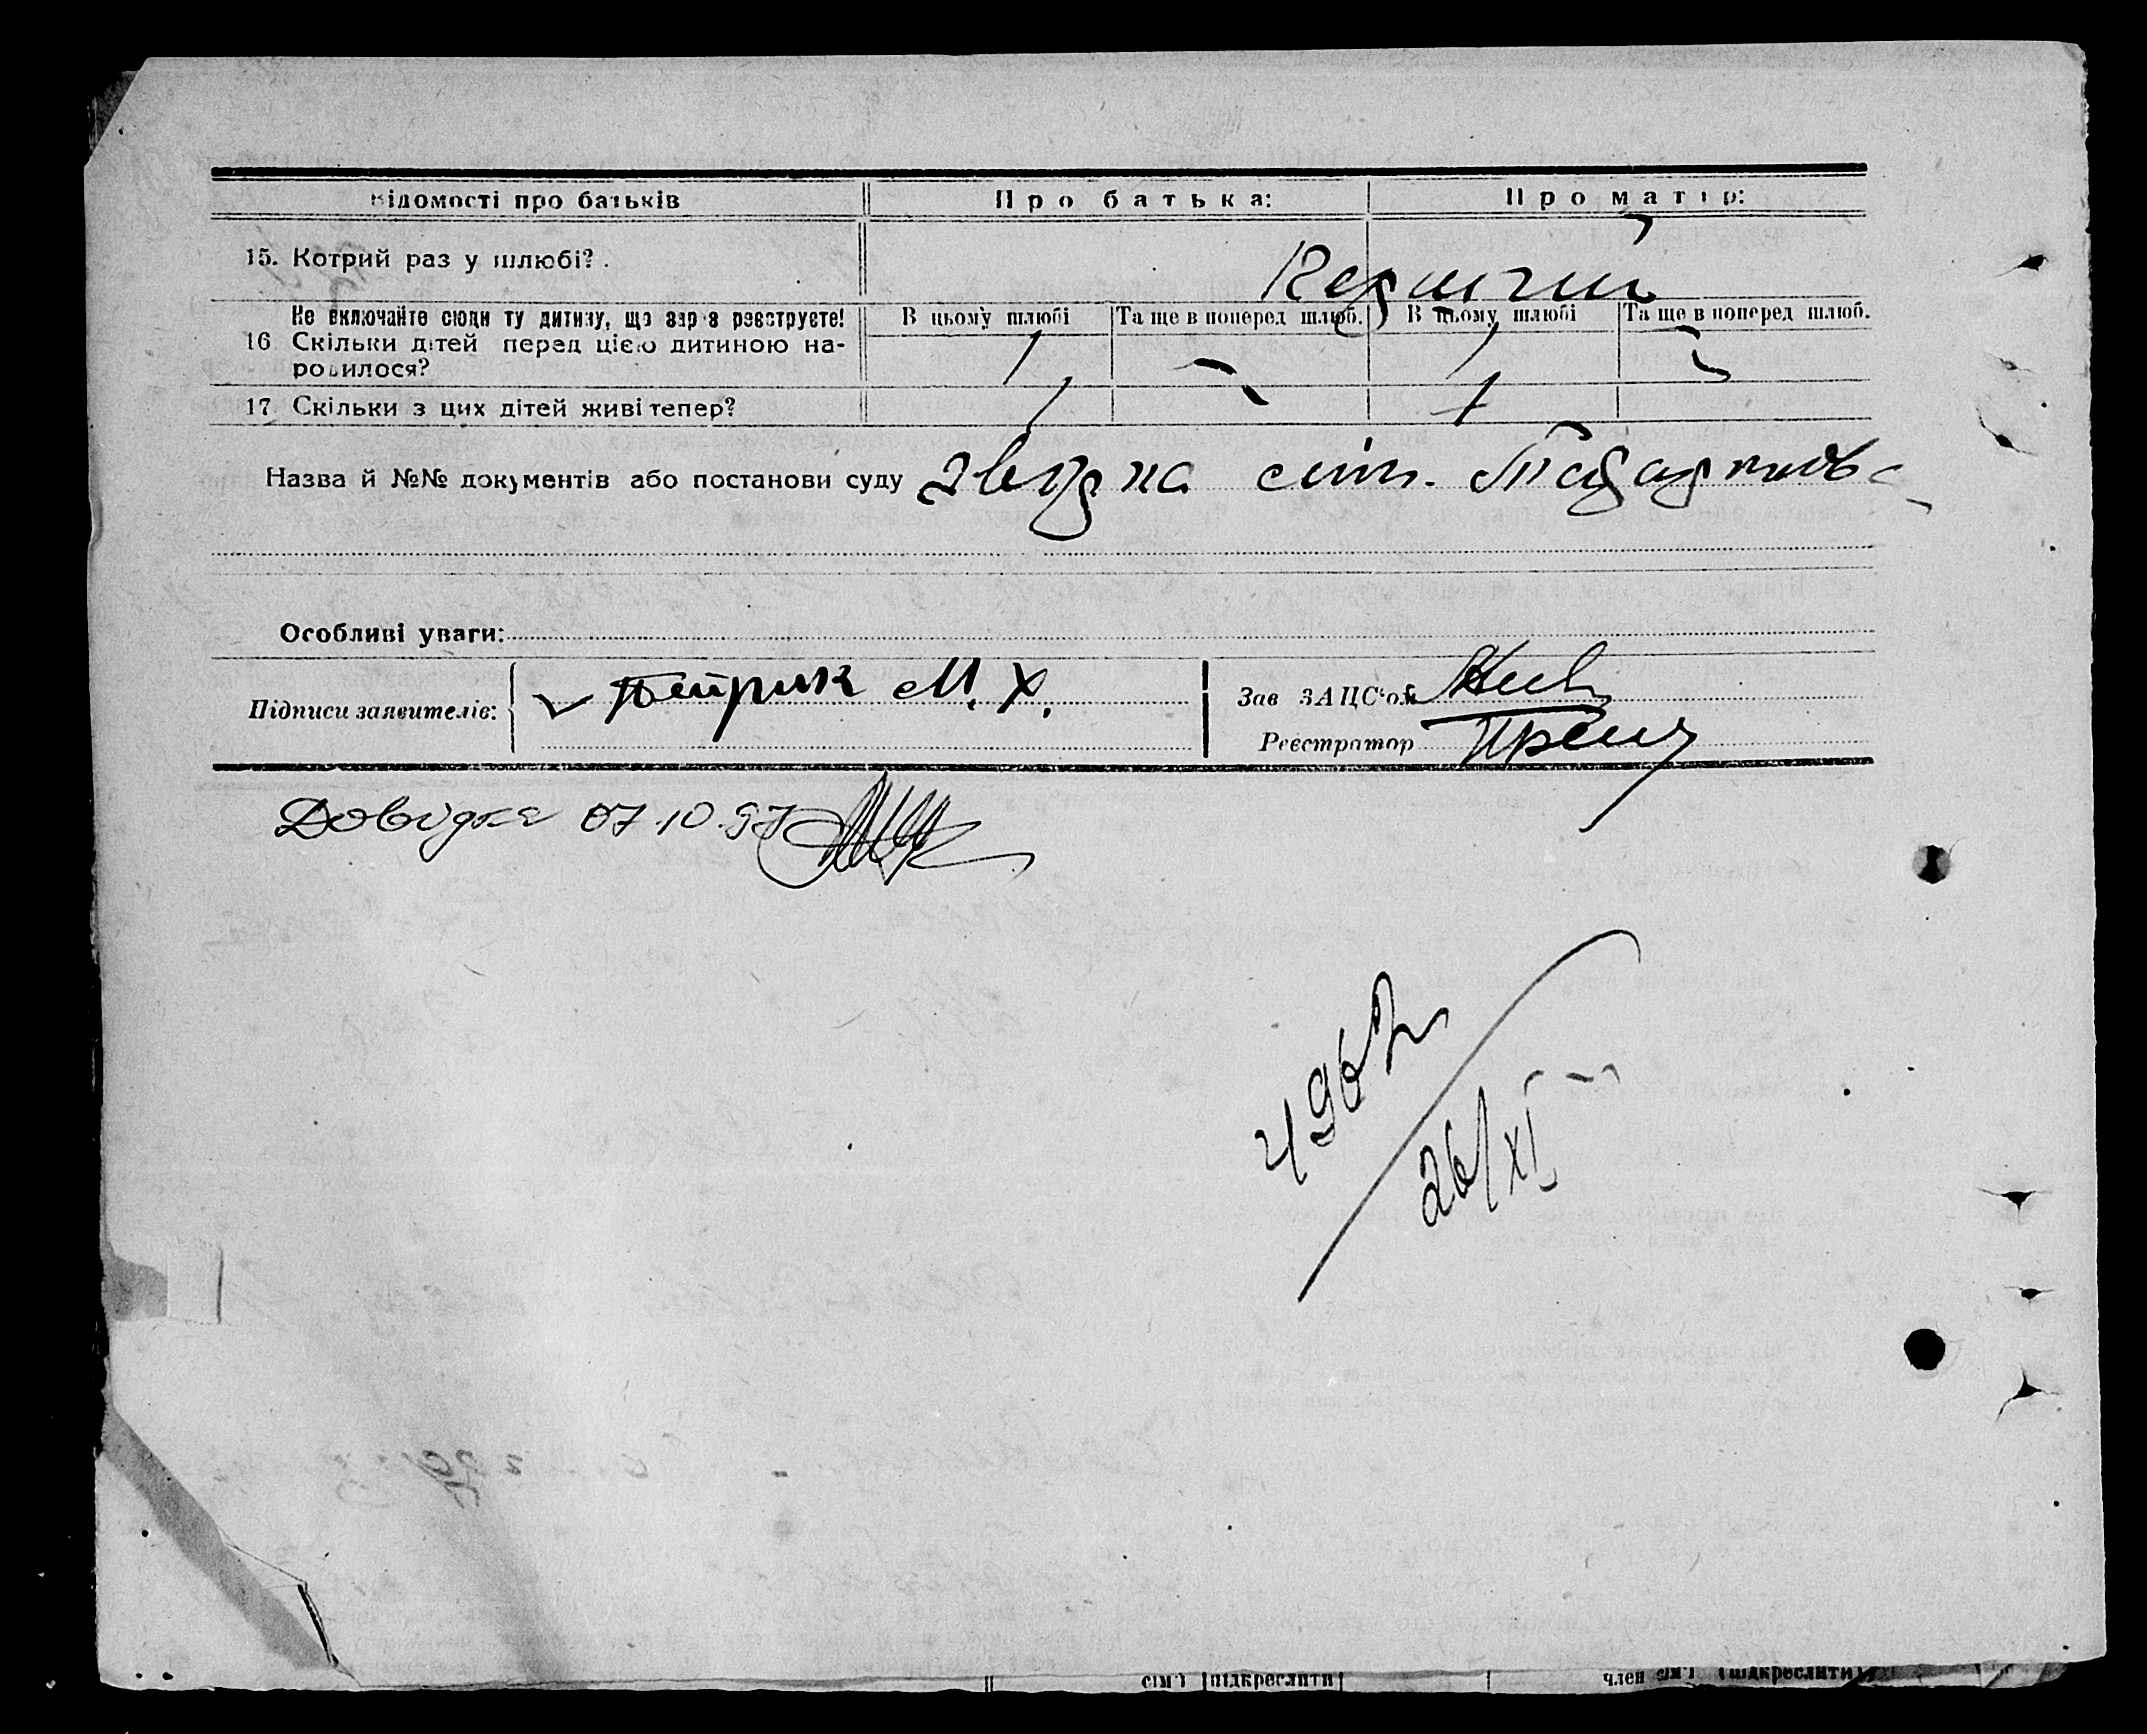 Відомості про батьків Про батька: Про матір:
15. Котрий раз у шлюбі?
Не включайте сюди ту дитину, що зараз реєструєте! В цьому шлюбі Та ще в поперед шлюб. В цьому шлюбі Та ще в поперед шлюб.
16 Скільки дітей перед цією дитиною на- 1 - 1 -
родилося?
17 Скільки з цих дітей живі тепер? 1 - 1
Назва й №№ документів або постанови суду
Особливі уваги:
Підписи заявителів: Петрик М. Х. Зав ЗАЦС'ом
Реєстратор
Довідка 07.10.97
4962
26/XI
сім'ї (підкреслити) член сім'ї (підкреслити)